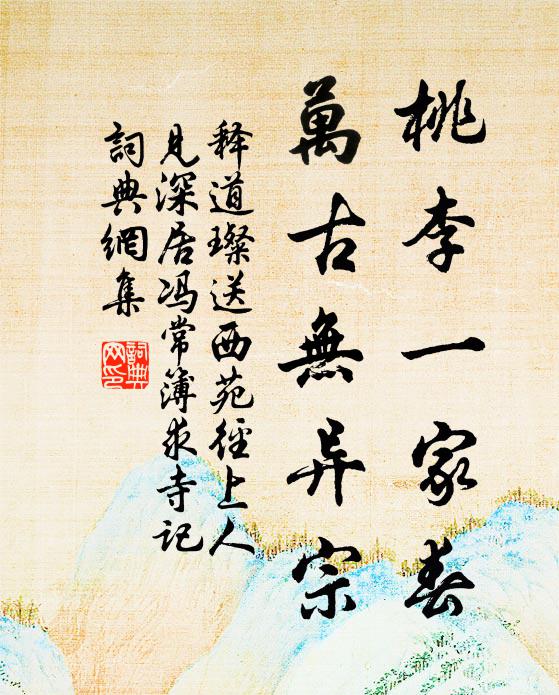 桃李一家春
萬古無异宗
释道璨送西苑徑上人
見深居冯常簿求寺記
詞典網集
詞典
网印